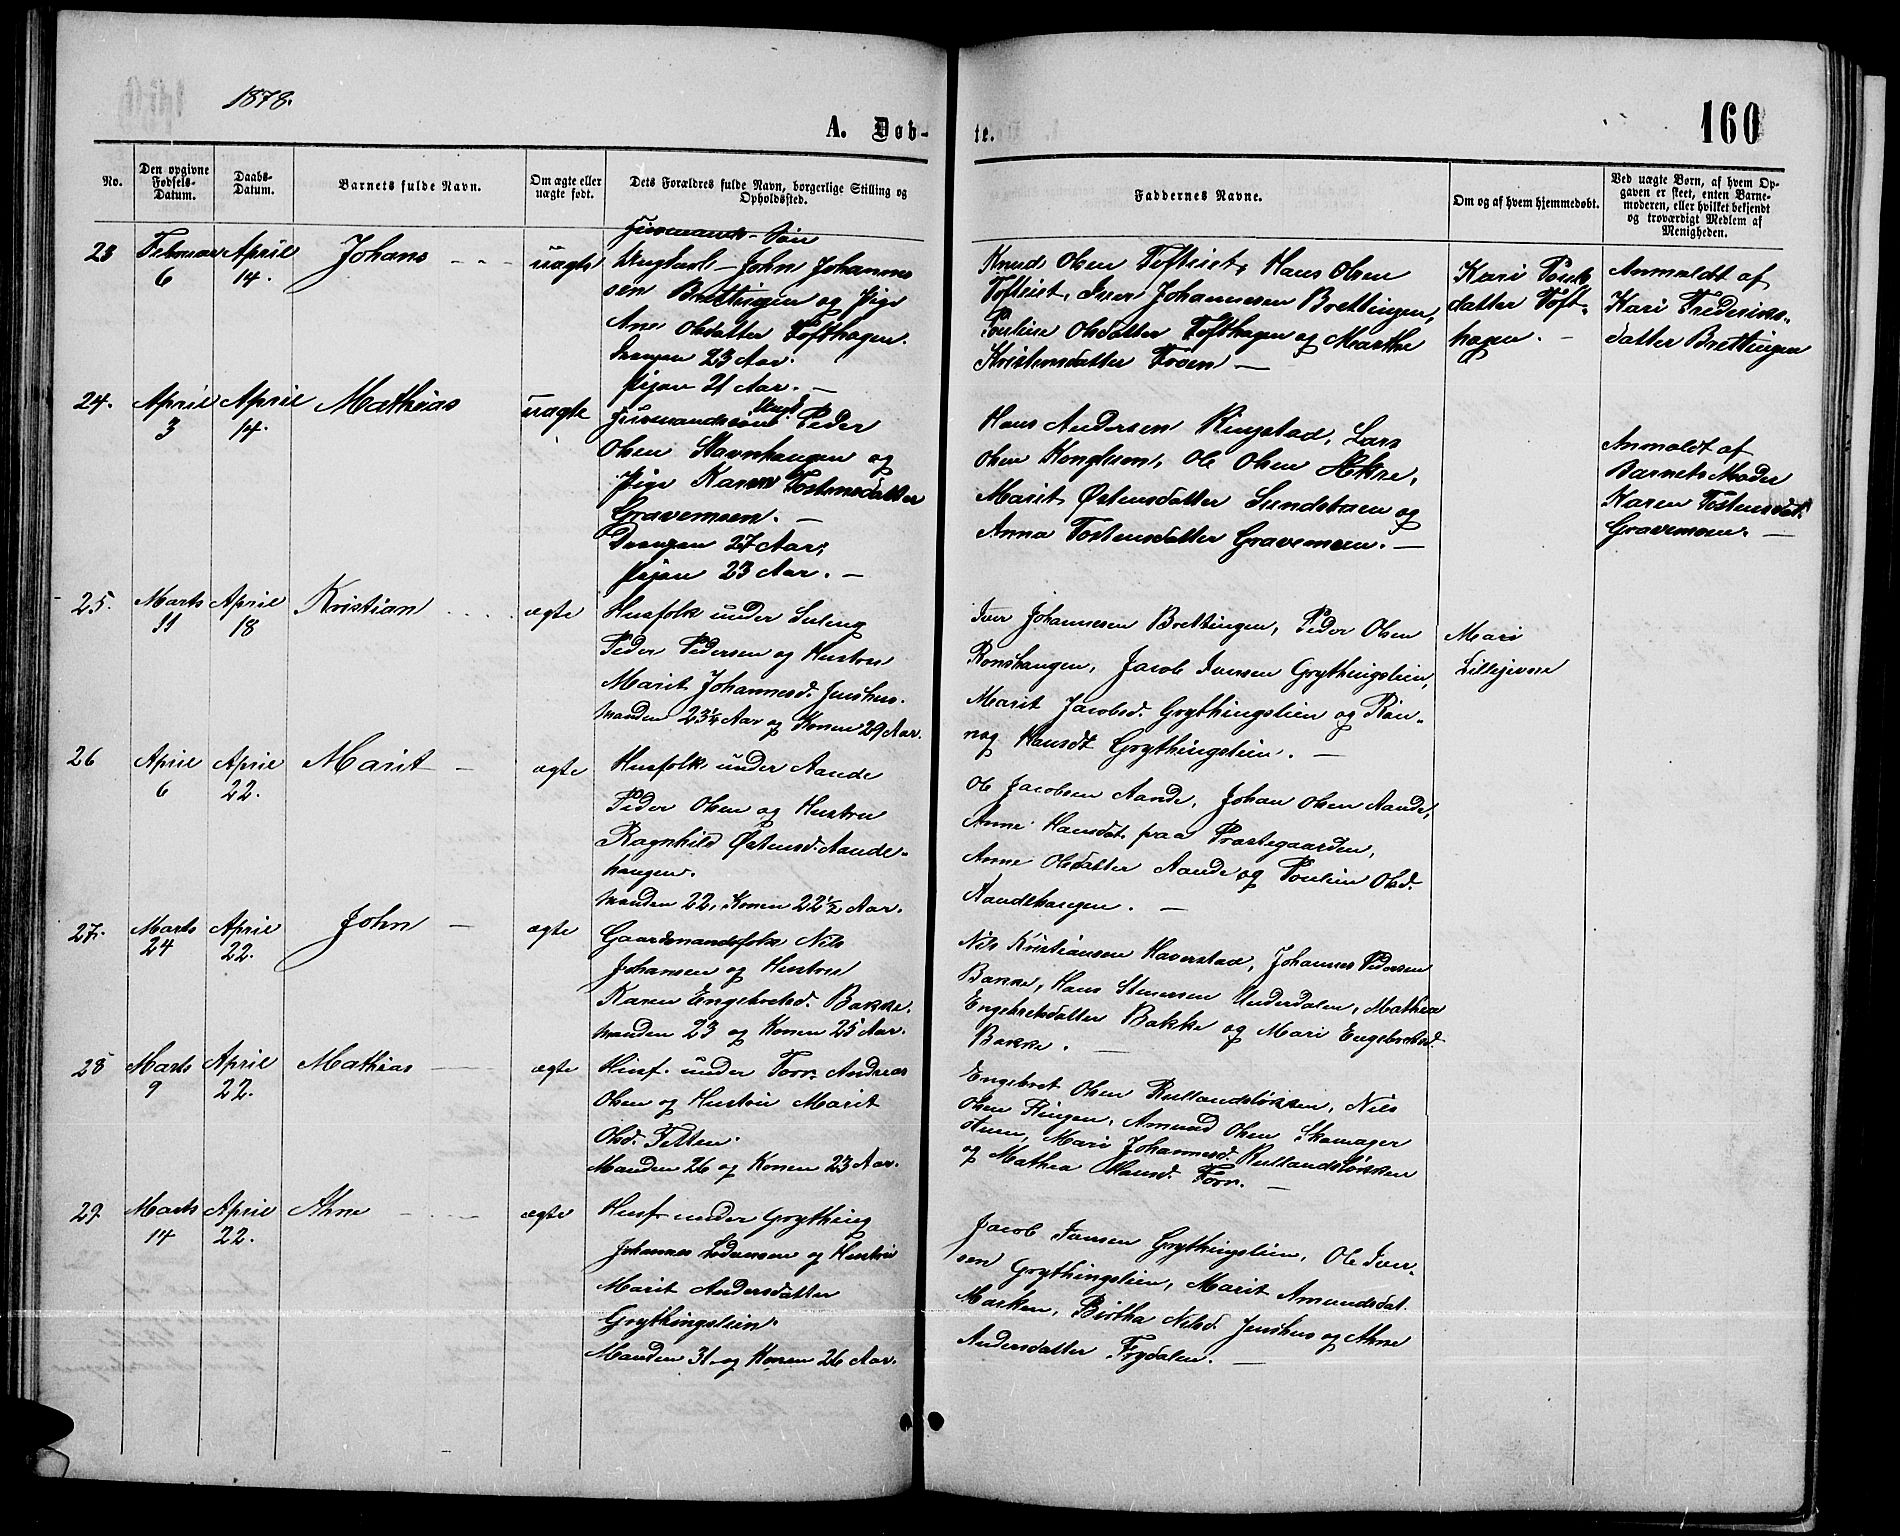 1878.
160
A. Døb-
te.
No.
Den opgivne
Fødsels-
Datum.
Daabs-
Datum.
Barnets fulde Navn.
Om ægte eller
uægte født.
Dets Forældres fulde Navn, borgerlige Stilling og
Opholdssted.
Faddernes Navne.
Om og af hvem hjemmedøbt.
Ved uægte Børn, af hvem Op-
gaven er skeet, enten Barne-
moderen, eller hvilket bekjendt
og troværdigt Medlem af
Menigheden.
23
Februar
6
April
14.
Johans
uægte
Søn
Ungkarl - John Johannes
sen Brettingen og Pige
Ane Olsdatter Tofthagen.
Drengen 23 Aar.
Pigen 21 Aar. —
Knud Olsen Tofteiet, Hans Olsen
Tofteiet, Iver Johannesen Brettingen,
Pouline Olsdatter Tofthagen og Marthe
Kristensdatter Froen —
Kari
datter Toft-
hagen. —
Anmeldt af
Kari Frederiks-
datter Brettingen
24.
April
3
April
14.
Mathias
uægte
Ungk.
Peder
Olsen Stavnhaugen og
Pige Karen Tostensdatter
Gravemoen. —
Drengen 27 Aar,
Pigen 23 Aar. —
Hans Andersen Ringstad, Lars
Olsen Konglsmo, Ole Olsen Ekre,
Marit Østensdatter Sundsbroen og
Anna Tostensdatter Gravemoen. —
Anmeldt af
Barnets Moder
Karen Tostensdat.
Gravemoen. —
25.
Marts
11
April
18
Kristian
ægte
Husfolk under Suleng
Peder Pedersen og Hustru
Marit Johannesd. Jenshus.
Manden 23½ Aar og Konen 29 Aar.
Iver Johannesen Brettingen, Peder Olsen
Ronshaugen, Jacob Iversen Grythingslien,
Marit Jacobsd. Grythingslien og Røn-
nog Hansdt Grythingslien. —
Mari
Lillejevne
26
April
6
April
22.
Marit
ægte
Husfolk under Aande
Peder Olsen og Hustru
Ragnhild Østensd. Aande-
haugen.
Manden 22, Konen 22½ Aar.
Ole Jacobsen Aande, Johan Olsen Aande,
Anne Hansdat. paa Præstegaarden,
Anne Olsdatter Aande og Pouline Olsd.
Aandehaugen. —
27.
Marts
24
April
22.
John
ægte
Gaardmandsfolk Nils
Johansen og Hustru
Karen Engebretsd. Bakke.
Manden 23 og Konen 25 Aar.
Nils Kristiansen Haverstad, Johannes Pedersen
Bakke, Hans Stenersen Underdalen, Mathea
Engebretsdatter Bakke og Mari Engebretsd.
Bakke. —
28
Marts
9
April
22.
Mathias
ægte
Husf. under Forr. Andreas
Olsen og Hustru Marit
Olsd. Tetten.
Manden 26 og Konen 23 Aar.
Engebret Olsen Rullandsløkken, Nils
Olsen Ringen, Amund Olsen Skomager
stuen, Mari Johannesd. Rullandsløkken
og Mathea Hansd. Forr. —
29
Marts
14
April
22.
Ahne
ægte
Husf. under Grything
Johannes og Hustru
Marit Andersdatter
Grythingslien.
Manden 31 og Konen 26 Aar.
Jacob Iversen Grythingslien, Ole Iver-
sen Grythingslien, Marit Amundsdat.
Marken, Birtha Nilsd. Jenshus og Ahne
Andersdatter Frydalen. —